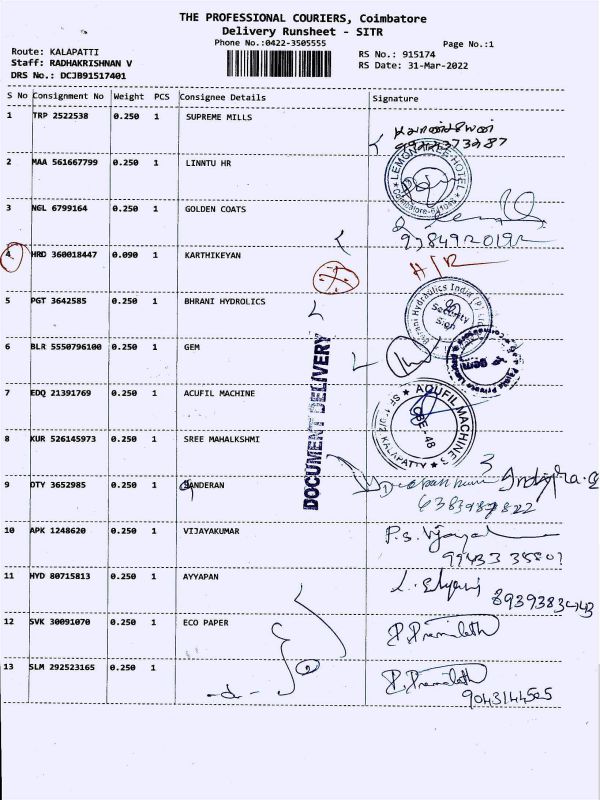 THE PROFESSIONAL COURIERS, Coimbatore
Delivery Runsheet - SITR
Phone No.:0422-3505555
Page No.:1
Route: KALAPATTI
RS No.: 915174
Staff: RADHAKRISHNAN V
RS Date: 31-Mar-2022
DRS No.: DCJB91517401
S No Consignment No Weight PCS Consignee Details Signature
1 TRP 2522538 0.250 1 SUPREME MILLS
2 MAA 561667799 0.250 1 LINNTU HR
LEMON TREE HOTEL
3 NGL 6799164 0.250 1 GOLDEN COATS
9784920192
4 HRD 360018447 0.090 1 KARTHIKEYAN
5 PGT 3642585 0.250 1 BHRANI HYDROLICS
Security
Sign
6 BLR 5550796100 0.250 1 GEM
7 EDQ 21391769 0.250 1 ACUFIL MACHINE
ACUFIL MACHINE
CBE - 48
KALAPATTY
8 KUR 526145973 0.250 1 SREE MAHALKSHMI
DOCUMENT DELIVERY
9 OTY 3652985 0.250 1 ANDERAN
10 APK 1248620 0.250 1 VIJAYAKUMAR
P.S. Vijaya
11 HYD 80715813 0.250 1 AYYAPAN
12 SVK 30091070 0.250 1 ECO PAPER
P. Pramilath
13 SLM 292523165 0.250 1
-do-
P. Pramilath
9043144505